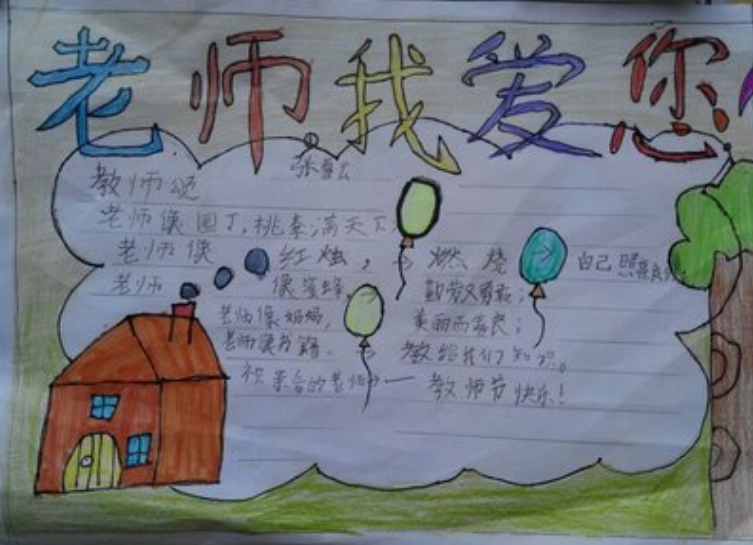 老师我爱您
教师颂
老师像园丁,桃李满天下,
老师像红烛,燃烧自己照亮
老师像蜜蜂,勤劳又勇敢;
老师像妈妈,美丽而善良;
老师像书籍,教给我们知识。
祝亲爱的老师— 教师节快乐!